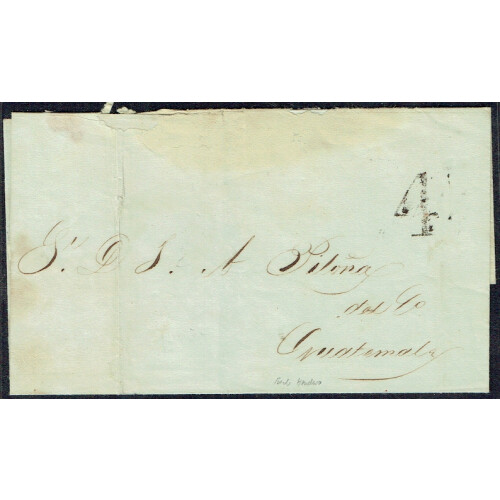 4
Sr. D. J. A. Piloña
del Co
Guatemala